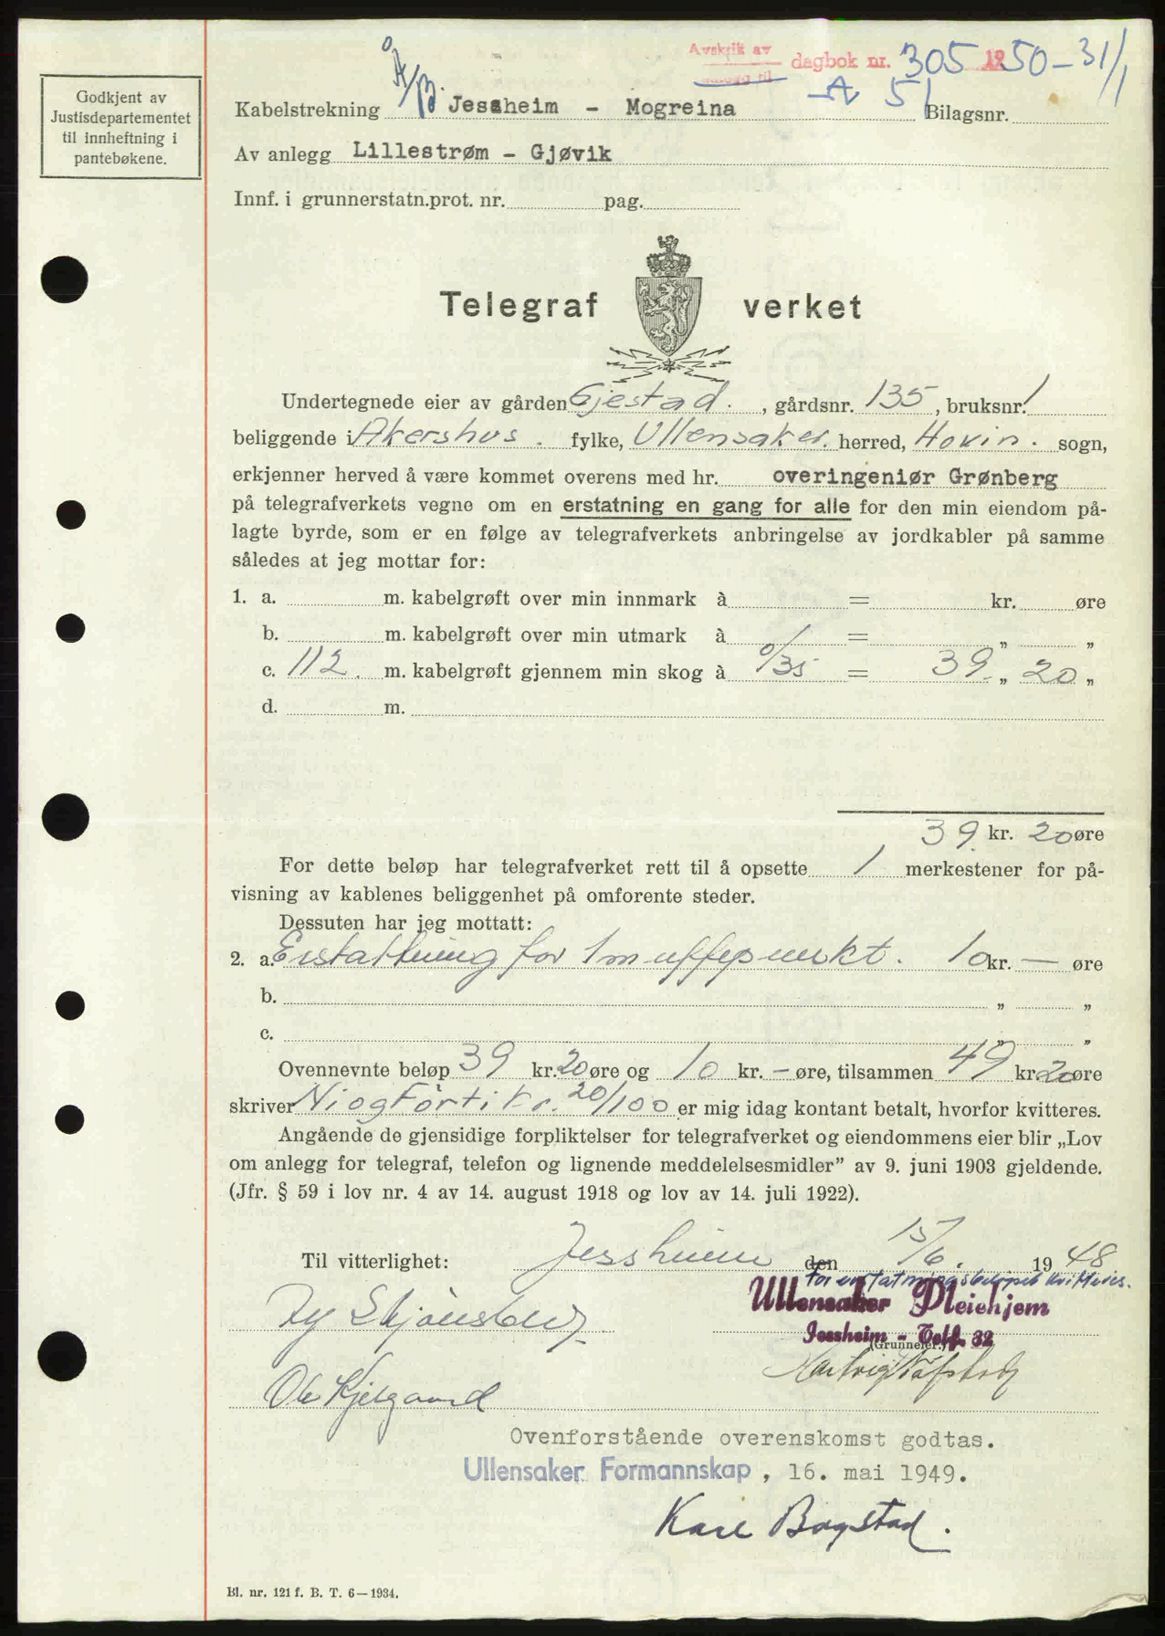 Avskrik av dagbok nr. 305 1950 - 31/1
A 51
Godkjent av
Justisdepartementet
til innheftning i
pantebøkene.
Kabelstrekning Å/B. Jessheim - Mogreina Bilagsnr.
Av anlegg Lillestrøm - Gjøvik
Innf. i grunnerstatn.prot. nr. pag.
Telegraf verket
Undertegnede eier av gården Gjestad. , gårdsnr. 135, bruksnr. 1
beliggende i Akershus. fylke, Ullensaker. herred, Hovin. sogn,
erkjenner herved å være kommet overens med hr. overingeniør Grønberg
på telegrafverkets vegne om en erstatning en gang for alle for den min eiendom på-
lagte byrde, som er en følge av telegrafverkets anbringelse av jordkabler på samme
således at jeg mottar for:
1. a. m. kabelgrøft over min innmark à = kr. øre
b. m. kabelgrøft over min utmark à = „ „
c. 112. m. kabelgrøft gjennem min skog à 0/35 = 39. „ 20 „
d. m.
39. kr. 20 øre
For dette beløp har telegrafverket rett til å opsette 1 merkestener for på-
visning av kablenes beliggenhet på omforente steder.
Dessuten har jeg mottatt:
2. a. Erstattning for 1 muffepunkt. 10 kr. - øre
b. „ „
c. „ „
Ovennevnte beløp 39 kr. 20 øre og 10 kr. - øre, tilsammen 49 kr 20 øre
skriver Ni og Førti kr. 20/100 er mig idag kontant betalt, hvorfor kvitteres.
Angående de gjensidige forpliktelser for telegrafverket og eiendommens eier blir „Lov
om anlegg for telegraf, telefon og lignende meddelelsesmidler” av 9. juni 1903 gjeldende.
(Jfr. § 59 i lov nr. 4 av 14. august 1918 og lov av 14. juli 1922).
Til vitterlighet: Jessheim den 15/6. 1948
For erstatningsbeløpet kvitteres.
Ullensaker Pleiehjem
Jessheim - Telf. 32
(Grunneier.)
Hartvig
Ole Kjelgaard
Ovenforstående overenskomst godtas.
Ullensaker Formannskap, 16. mai 1949.
Kare Bogstad.
Bl. nr. 121 f. B. T. 6—1934.